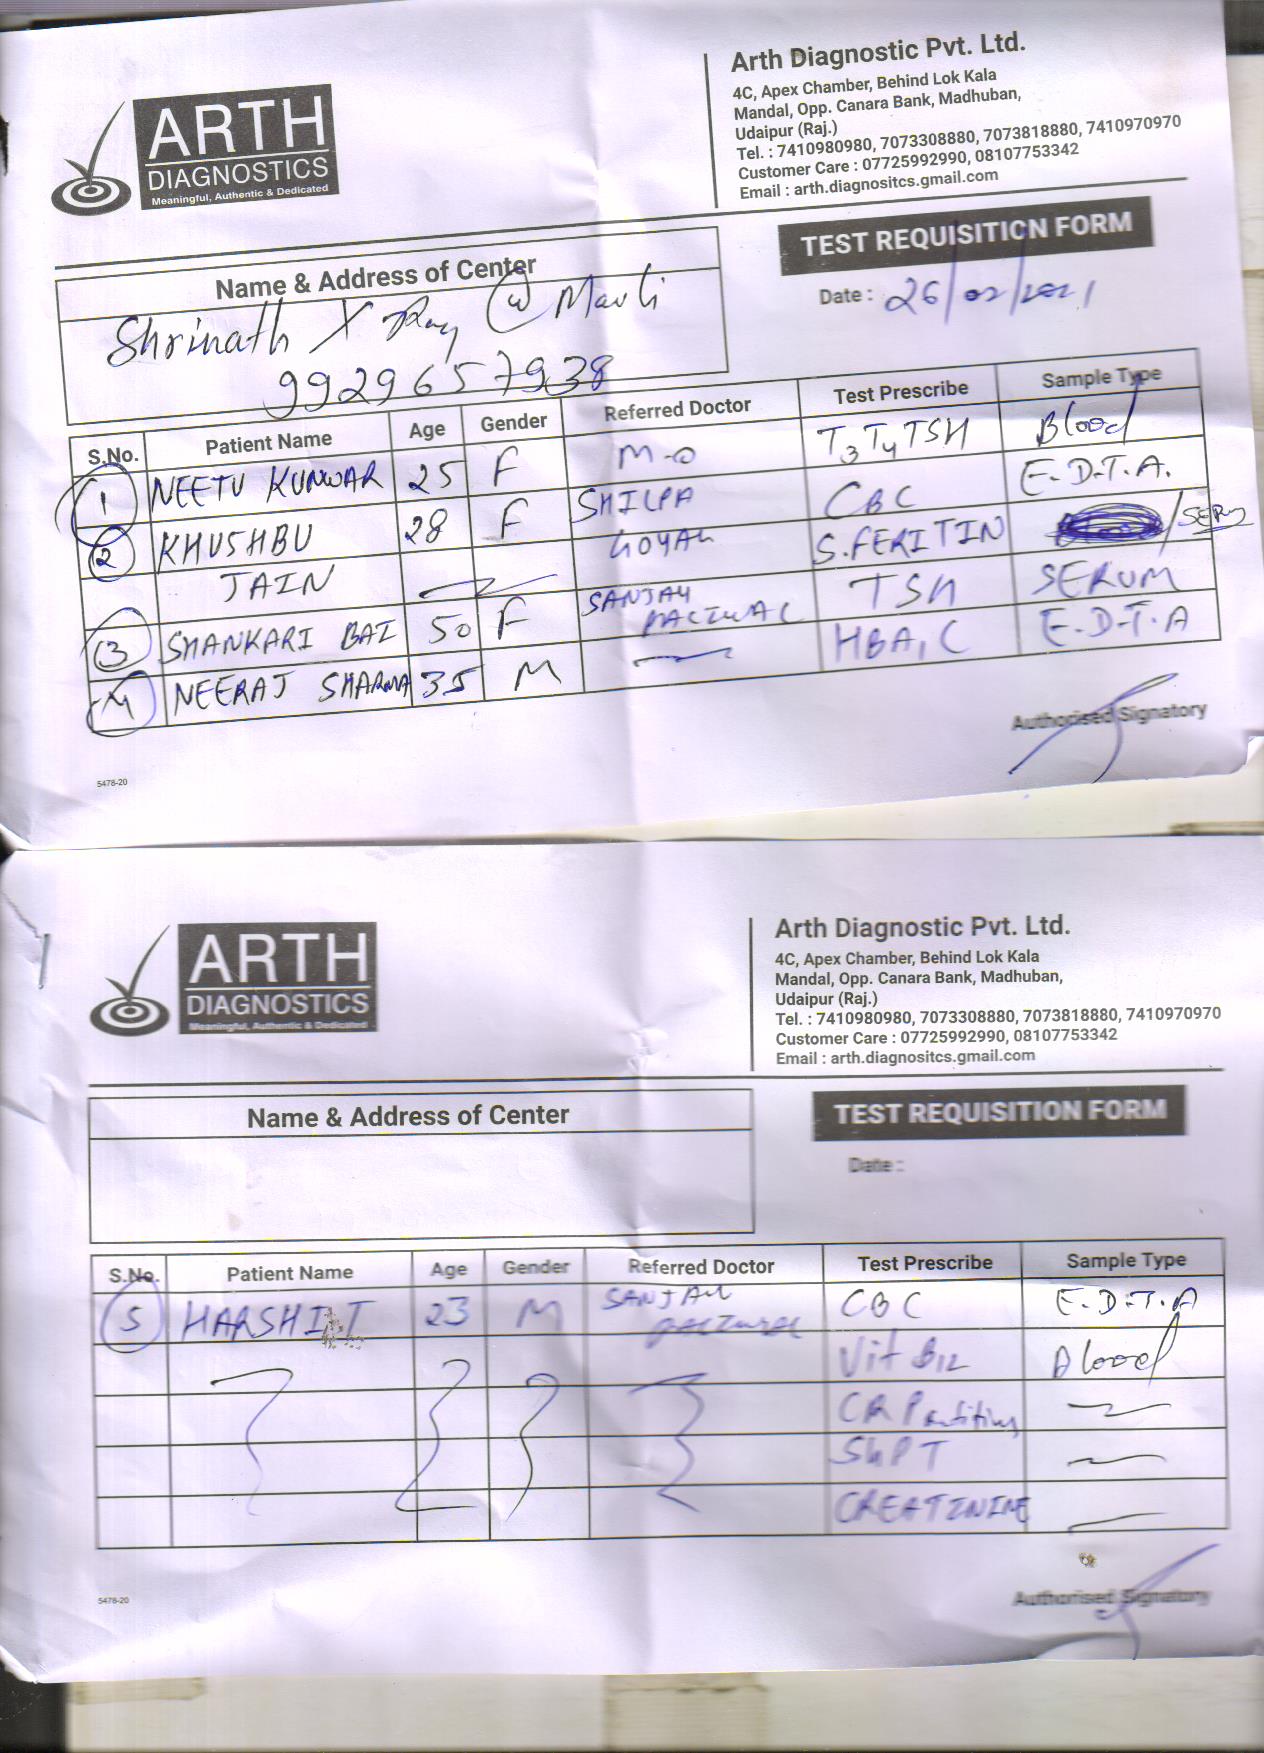 ARTH
DIAGNOSTICS
Meaningful, Authentic & Dedicated
Arth Diagnostic Pvt. Ltd.
4C, Apex Chamber, Behind Lok Kala
Mandal, Opp. Canara Bank, Madhuban,
Udaipur (Raj.)
Tel. : 7410980980, 7073308880, 7073818880, 7410970970
Customer Care : 07725992990, 08107753342
Email : arth.diagnositcs.gmail.com
TEST REQUISITION FORM
Date : 26/02/2021
Name & Address of Center
Shrinath X Ray @ Mavli
9929657938
S.No. Patient Name Age Gender Referred Doctor Test Prescribe Sample Type
1 NEETU KUNWAR 25 F M-O T3 T4 TSH Blood
2 KHUSHBU 28 F SHILPA CBC E.D.T.A.
JAIN GOYAL S.FERITIN SERUM
3 SHANKARI BAI 50 F SANJAY TSH SERUM
4 NEERAJ SHARMA 35 M HBA1C E.D.T.A
Authorised Signatory
5478-20
ARTH
DIAGNOSTICS
Meaningful, Authentic & Dedicated
Arth Diagnostic Pvt. Ltd.
4C, Apex Chamber, Behind Lok Kala
Mandal, Opp. Canara Bank, Madhuban,
Udaipur (Raj.)
Tel. : 7410980980, 7073308880, 7073818880, 7410970970
Customer Care : 07725992990, 08107753342
Email : arth.diagnositcs.gmail.com
Name & Address of Center
TEST REQUISITION FORM
Date :
S.No. Patient Name Age Gender Referred Doctor Test Prescribe Sample Type
5 HARSHIT 23 M SANJAY CBC E.D.T.A
Vit B12 Blood
CRP
SGPT
CREATININE
Authorised Signatory
5478-20